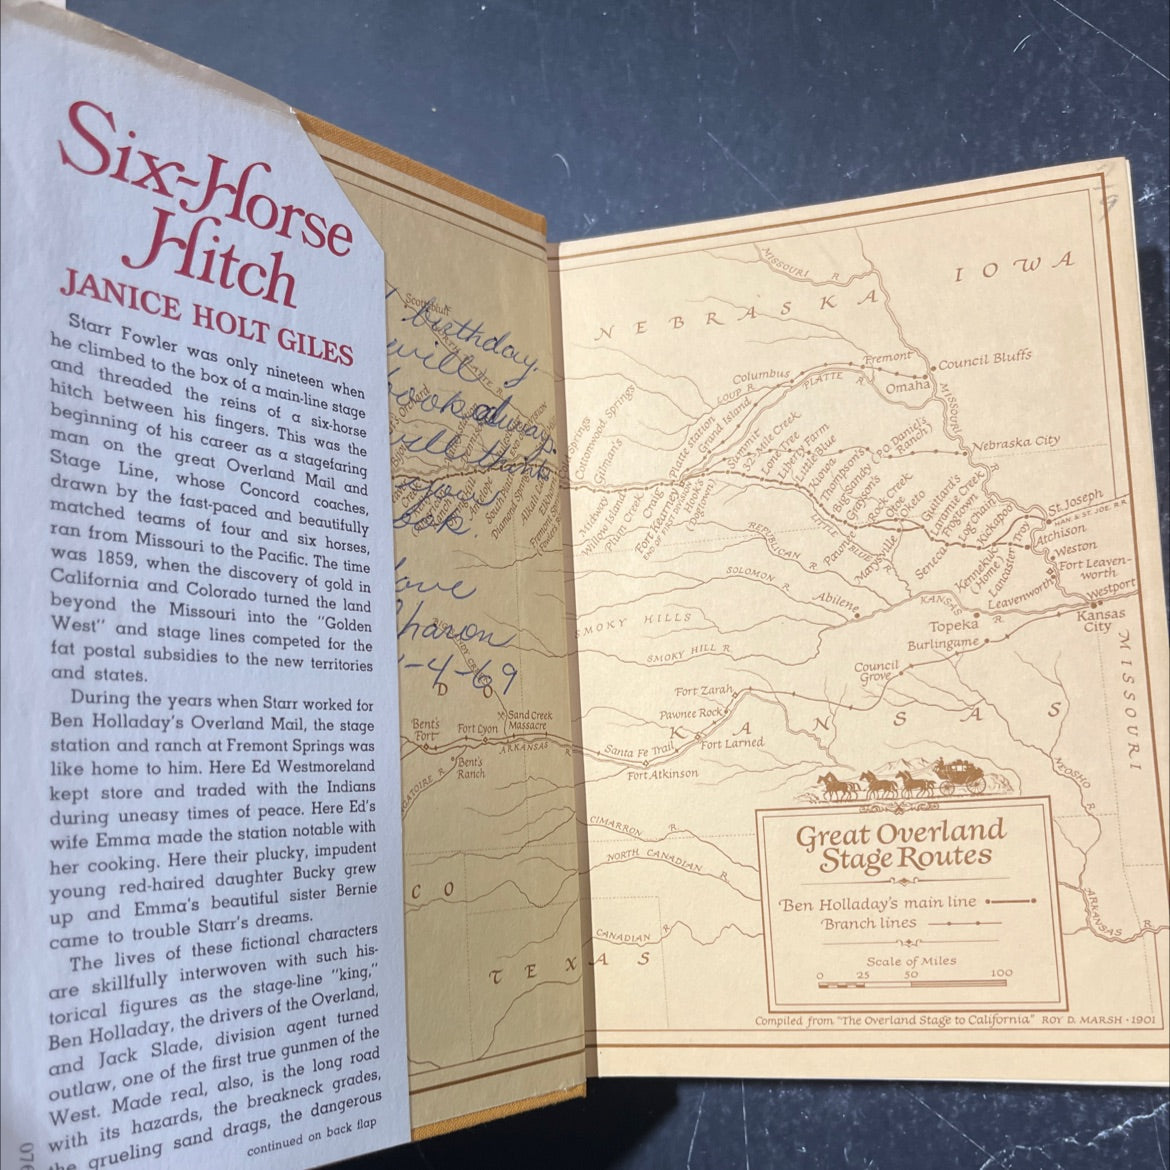 Six-Horse
Hitch
JANICE HOLT GILES
Starr Fowler was only nineteen when
he climbed to the box of a main-line stage
and threaded the reins of a six-horse
hitch between his fingers. This was the
beginning of his career as a stagefaring
man on the great Overland Mail and
Stage Line, whose Concord coaches,
drawn by the fast-paced and beautifully
matched teams of four and six horses,
ran from Missouri to the Pacific. The time
was 1859, when the discovery of gold in
California and Colorado turned the land
beyond the Missouri into the "Golden
West" and stage lines competed for the
fat postal subsidies to the new territories
and states.
During the years when Starr worked for
Ben Holladay's Overland Mail, the stage
station and ranch at Fremont Springs was
like home to him. Here Ed Westmoreland
kept store and traded with the Indians
during uneasy times of peace. Here Ed's
wife Emma made the station notable with
her cooking. Here their plucky, impudent
young red-haired daughter Bucky grew
up and Emma's beautiful sister Bernie
came to trouble Starr's dreams.
The lives of these fictional characters
are skillfully interwoven with such his-
torical figures as the stage-line "king,"
Ben Holladay, the drivers of the Overland,
and Jack Slade, division agent turned
outlaw, one of the first true gunmen of the
West. Made real, also, is the long road
with its hazards, the breakneck grades,
the grueling sand drags, the dangerous
continued on back flap
076
birthday.
will
book always
will think
your
book.
love
Sharon
-4-69
Bent's
Fort
Fort Lyon
Sand Creek
Massacre
ARKANSAS R.
Bent's
Ranch
C O
T E X A S
IOWA
NEBRASKA
MISSOURI R.
Fremont
Council Bluffs
Columbus
PLATTE R.
Omaha
LOUP R.
MISSOURI R.
Cottonwood Springs
Gilman's
Platte Station
Grand Island
Summit
32-Mile Creek
Lone Tree
Liberty Farm
Little Blue
Kiowa
Thompson's
Big Sandy
(P.O. Daniels
Ranch)
Nebraska City
Midway
Willow Island
Plum Creek
Craig
Fort Kearney
Hook's
(Dogtown)
Grayson's
Rock Creek
Otoe
Oketo
Guittard's
Laramie Creek
Frogtown
Log Chain
Kickapoo
Troy
St. Joseph
HAN. & ST. JOE. R.R.
Atchison
Weston
Fort Leaven-
worth
Westport
REPUBLICAN R.
LITTLE BLUE R.
Marysville
Seneca
Kennekuk
(Home)
Lancaster
Leavenworth
SOLOMON R.
Abilene
KANSAS R.
Topeka
Kansas
City
SMOKY HILLS
SMOKY HILL R.
Burlingame
Council
Grove
MISSOURI
Fort Zarah
Pawnee Rock
KANSAS
Santa Fe Trail
Fort Larned
Fort Atkinson
NEOSHO R.
CIMARRON R.
NORTH CANADIAN R.
CANADIAN R.
ARKANSAS R.
Great Overland
Stage Routes
Ben Holladay's main line
Branch lines
Scale of Miles
0 25 50 100
Compiled from "The Overland Stage to California" ROY D. MARSH · 1901